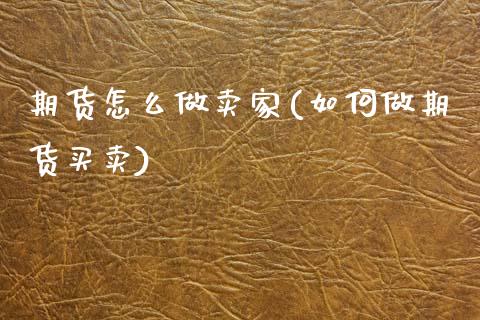 期货怎么做卖家(如何做期
货买卖)